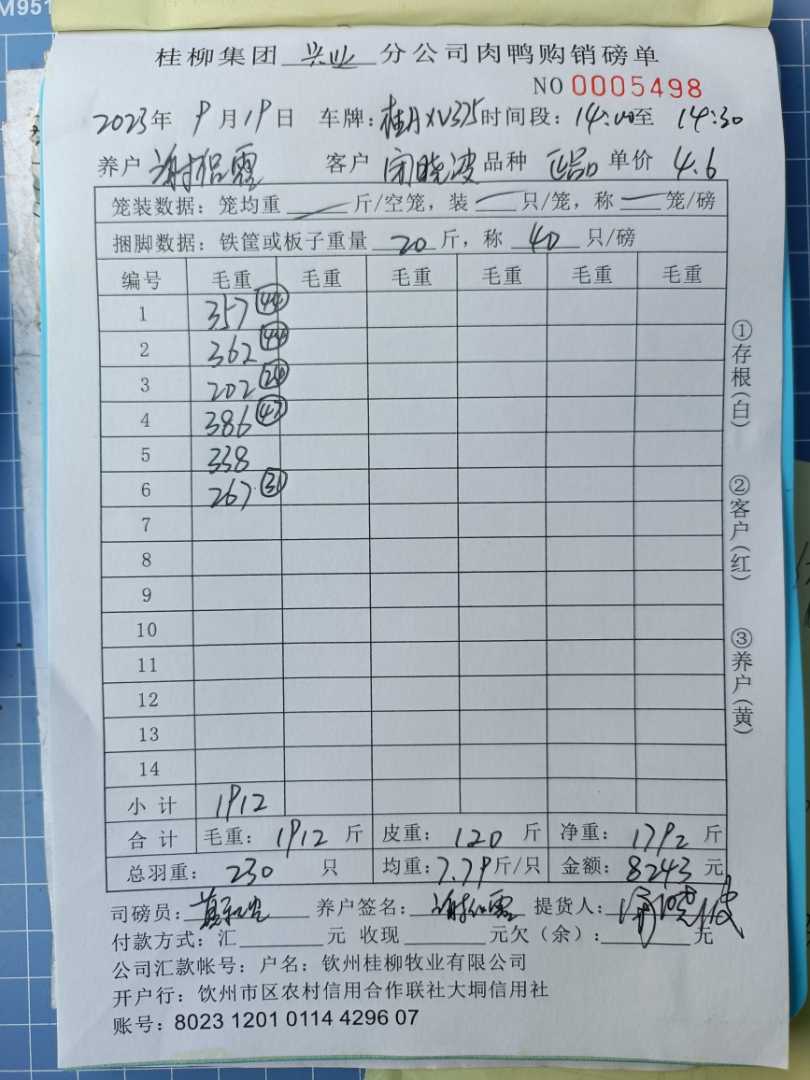 M951
桂柳集团 兴业 分公司肉鸭购销磅单
NO 0005498
2023年 9月19日 车牌：桂AXV375 时间段：14:00至 14:30
养户 谢绍霞 客户 闭晓波 品种 正品 单价 4.6
笼装数据：笼均重 斤/空笼，装 一 只/笼，称 一 笼/磅
捆脚数据：铁筐或板子重量 20 斤，称 40 只/磅
编号 毛重 毛重 毛重 毛重 毛重 毛重
1 357 44
2 362 44
3 202 24
4 386 47
5 338
6 267 31
7
8
9
10
11
12
13
14
小计 1912
合计 毛重：1912 斤 皮重：120 斤 净重：1792 斤
总羽重：230 只 均重：7.79斤/只 金额：8243 元
司磅员： 养户签名：谢绍霞 提货人：闭晓波
付款方式：汇 元 收现 元欠（余）： 元
公司汇款帐号：户名：钦州桂柳牧业有限公司
开户行：钦州市区农村信用合作联社大垌信用社
账号：8023 1201 0114 4296 07
①存根（白）
②客户（红）
③养户（黄）